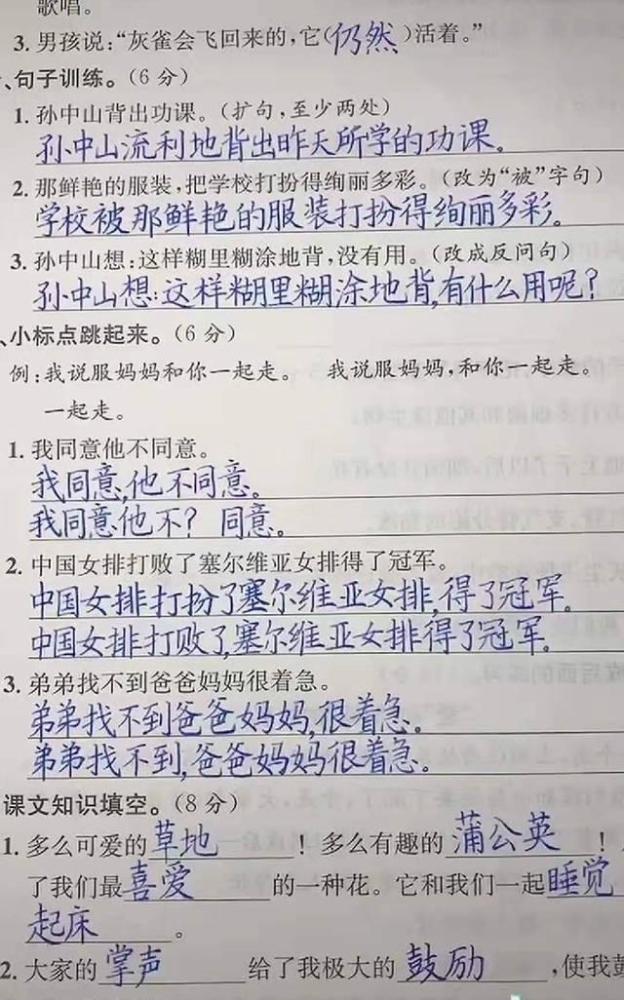 歌唱。
3. 男孩说:“灰雀会飞回来的,它(仍然)活着。”
、句子训练。(6分)
1. 孙中山背出功课。(扩句,至少两处)
孙中山流利地背出昨天所学的功课。
2. 那鲜艳的服装,把学校打扮得绚丽多彩。(改为“被”字句)
学校被那鲜艳的服装打扮得绚丽多彩。
3. 孙中山想:这样糊里糊涂地背,没有用。(改成反问句)
孙中山想:这样糊里糊涂地背,有什么用呢?
、小标点跳起来。(6分)
例:我说服妈妈和你一起走。 我说服妈妈,和你一起走。
一起走。
1. 我同意他不同意。
我同意,他不同意。
我同意他不? 同意。
2. 中国女排打败了塞尔维亚女排得了冠军。
中国女排打扮了塞尔维亚女排,得了冠军。
中国女排打败了,塞尔维亚女排得了冠军。
3. 弟弟找不到爸爸妈妈很着急。
弟弟找不到爸爸妈妈,很着急。
弟弟找不到,爸爸妈妈很着急。
课文知识填空。(8分)
1. 多么可爱的草地! 多么有趣的蒲公英!
了我们最喜爱的一种花。它和我们一起睡觉
起床。
2. 大家的掌声给了我极大的鼓励,使我